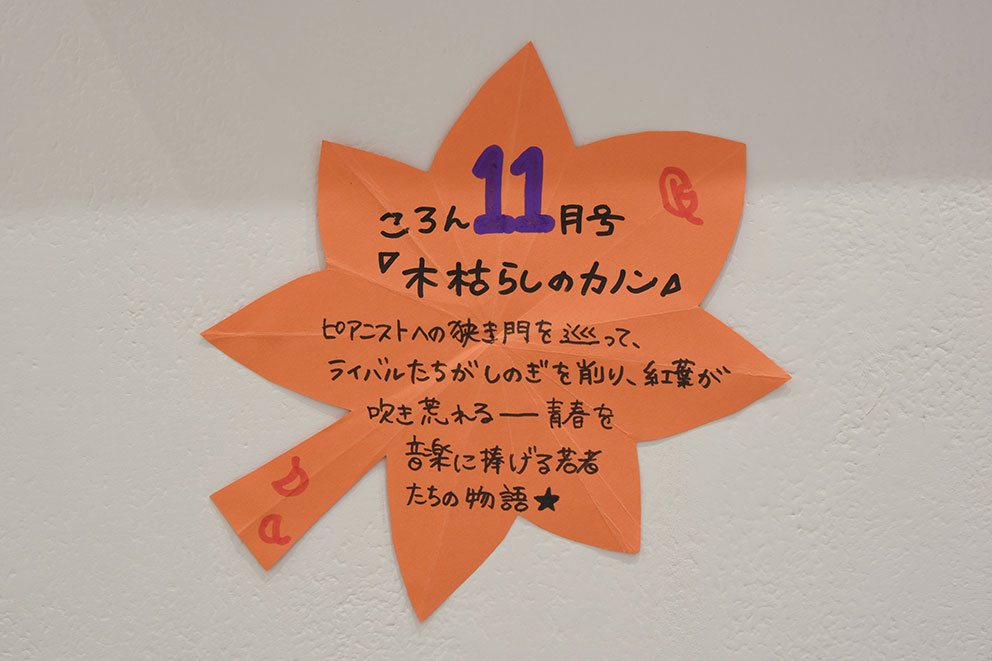 ころん11月号
『木枯らしのカノン』
ピアニストへの狭き門を巡って、
ライバルたちがしのぎを削り、紅葉が
吹き荒れる――青春を
音楽に捧げる若者
たちの物語★